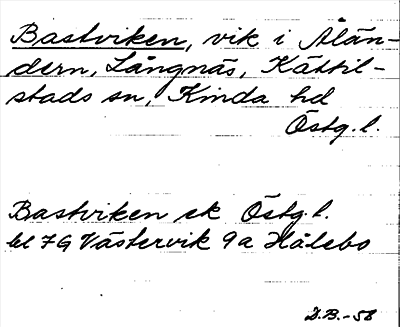 Bastviken, vik i Ålän-
dern, Långnäs, Kättil-
stads sn, Kinda hd
Östg.l.
Bastviken ek Östg.l.
bl 7G Västervik 9a Hålebo
D.B.-58